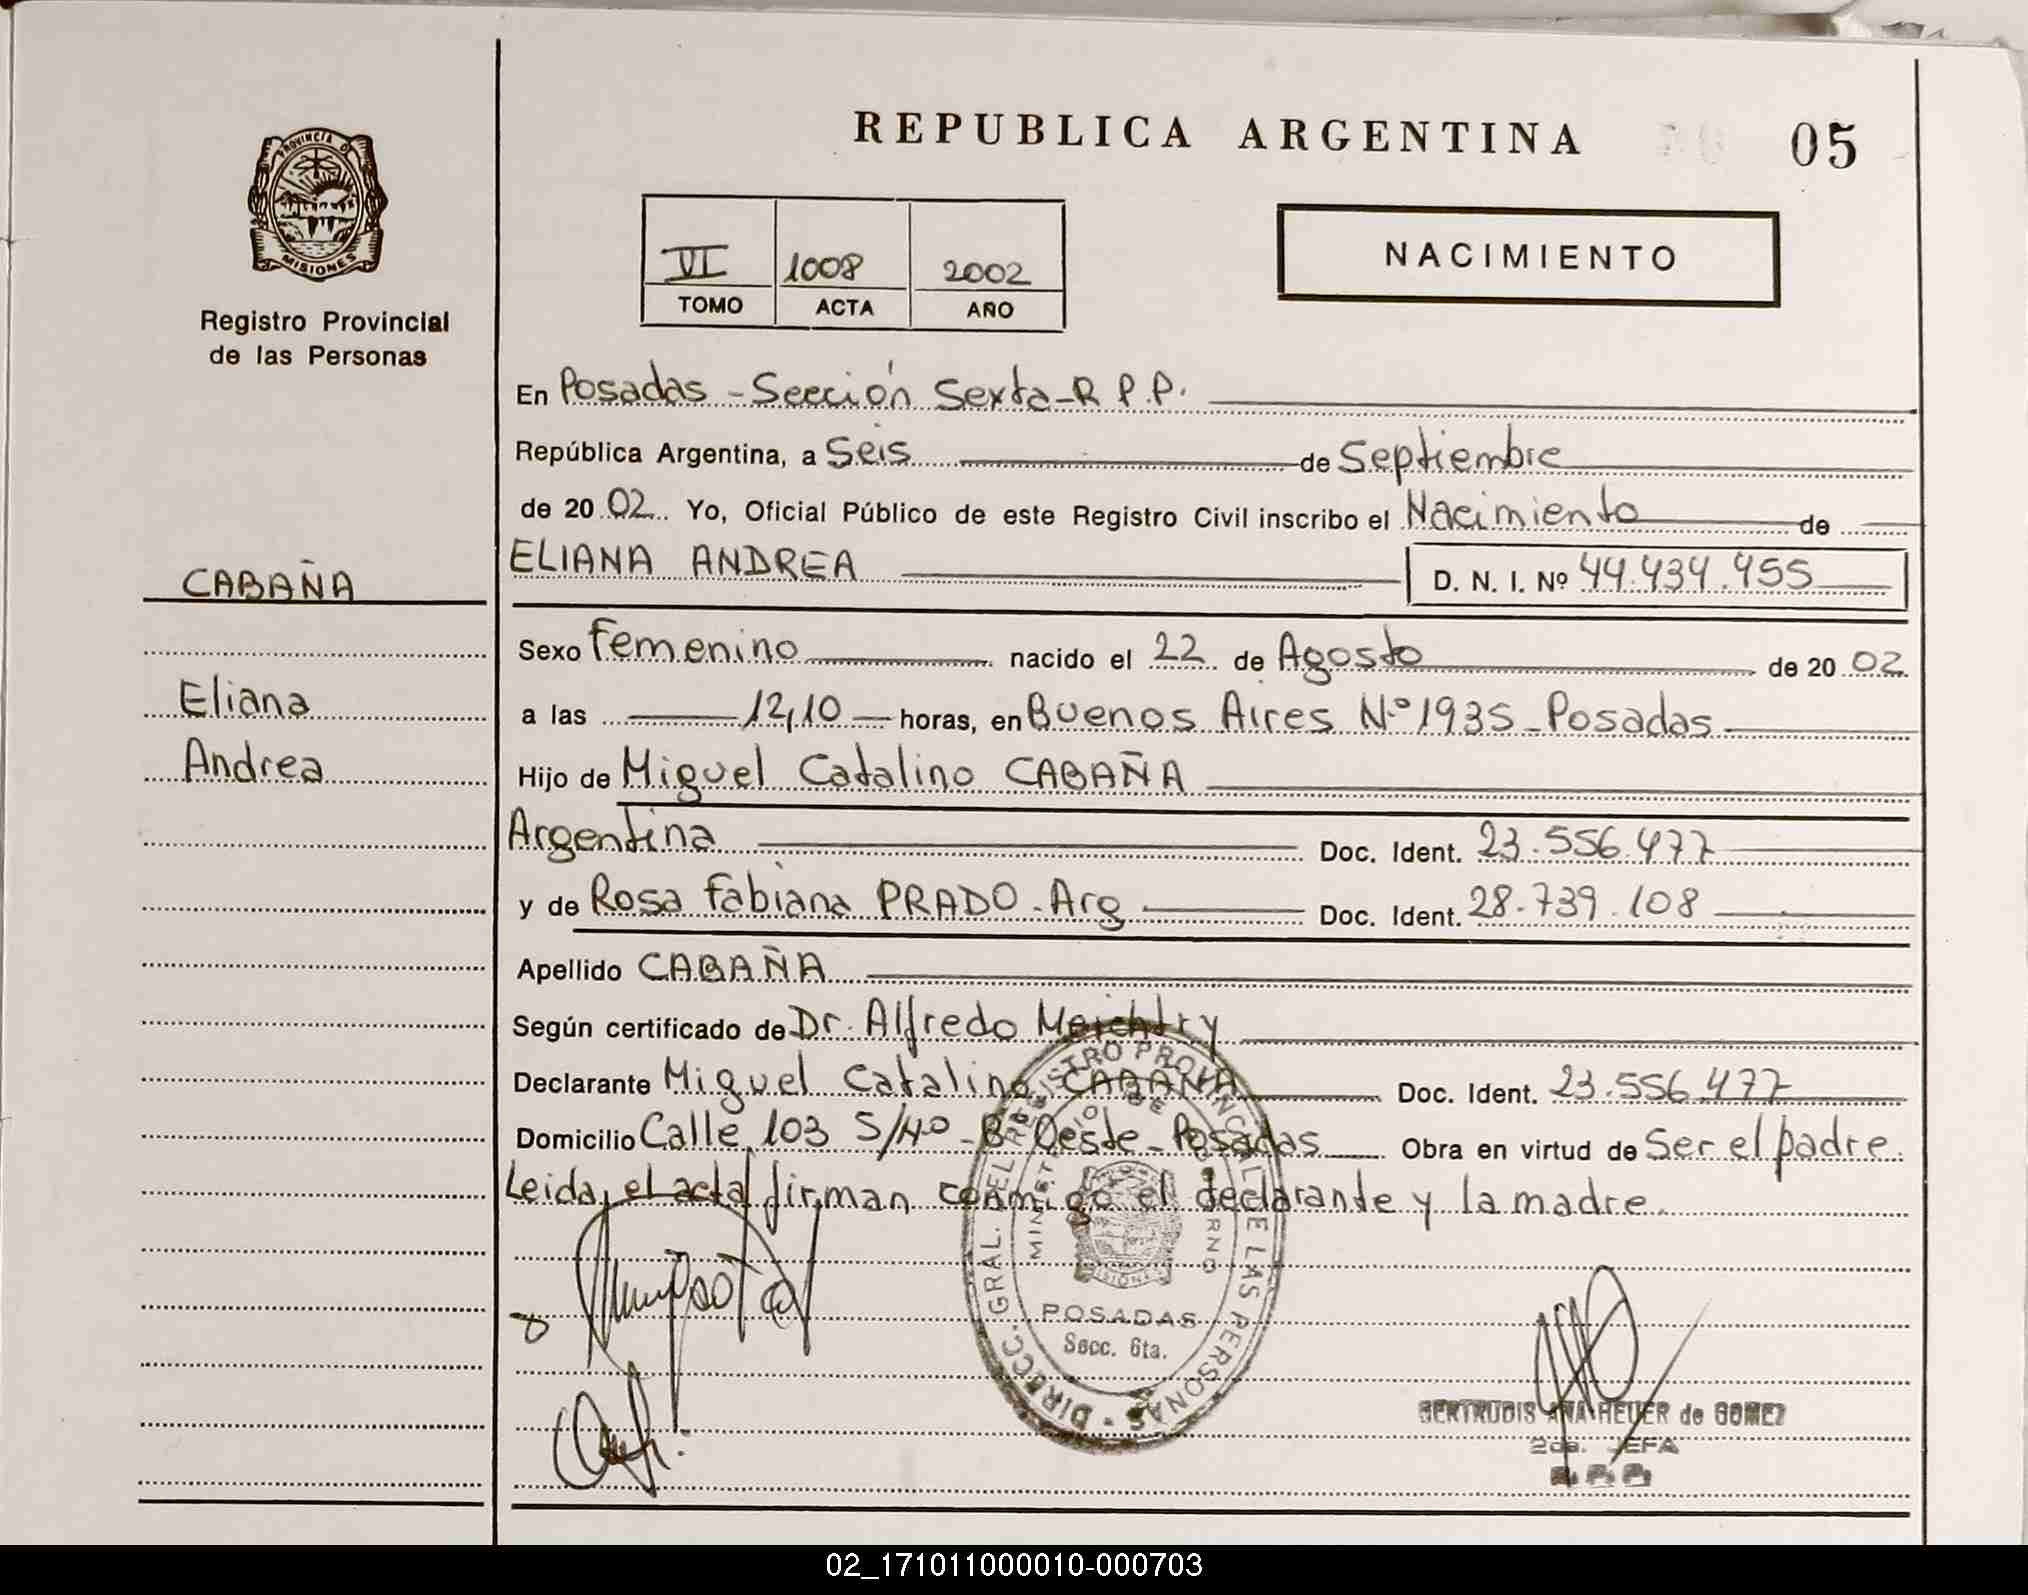 REPUBLICA ARGENTINA 05
PROVINCIA D
MISIONES
Registro Provincial
de las Personas
VI 1008 2002
TOMO ACTA AÑO
NACIMIENTO
En Posadas - Sección Sexta - R P.P.
República Argentina, a Seis de Septiembre
de 20 02 Yo, Oficial Público de este Registro Civil inscribo el Nacimiento de
CABAÑA
ELIANA ANDREA D. N. I. Nº 44.434.455
Sexo Femenino nacido el 22 de Agosto de 20 02
Eliana
a las 12,10 horas, en Buenos Aires Nº 1935 - Posadas
Andrea
Hijo de Miguel Catalino CABAÑA
Argentina Doc. Ident. 23.556.477
y de Rosa Fabiana PRADO - Arg Doc. Ident. 28.739.108
Apellido CABAÑA
Según certificado de Dr. Alfredo Meichtry
Declarante Miguel Catalino CABAÑA Doc. Ident. 23.556.477
Domicilio Calle 103 S/Nº - Bº Oeste - Posadas Obra en virtud de Ser el padre.
Leida, el acta firman conmigo el declarante y la madre.
DIRECC. GRAL. DEL REGISTRO PROVINCIAL DE LAS PERSONAS
MISIONES
POSADAS
Secc. 6ta.
GERTRUDIS ANA HEUER de GOMEZ
2da. JEFA
02_171011000010-000703